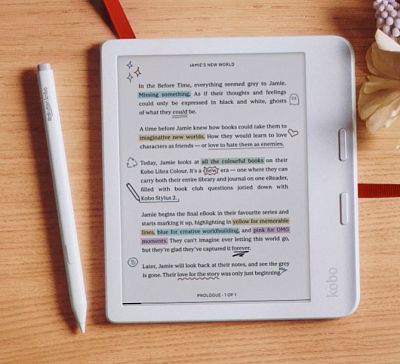 JAMIE'S NEW WORLD
In the Before Time, everything seemed grey to Jamie.
Missing something. As if their thoughts and feelings
could only be expressed in black and white, ghosts
of what they could be.
A time before Jamie knew how books could take them to
imaginative new worlds. How they would learn to love
characters as friends — or love to hate them as enemies.
Today, Jamie looks at all the colourful books on their
Kobo Libra Colour. It's a new era — one where they can
carry both their entire library and journal on one eReader,
filled with book club questions jotted down with
Kobo Stylus 2.
Jamie begins the final eBook in their favourite series and
starts marking it up, highlighting in yellow for memorable
lines, blue for creative worldbuilding, and pink for OMG
moments. They can't imagine ever letting this world go,
but they're glad they've captured it forever.
Later, Jamie will look back at their notes, and see the grey
is gone. Their love for the story was only just beginning.
PROLOGUE - 1 OF 1
kobo